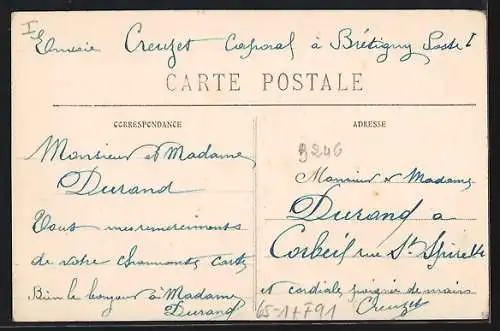 I
Creuzet Caporal à Brétigny Poste I
CARTE POSTALE
CORRESPONDANCE
Monsieur et Madame
Durand
Tous mes remerciements
de votre charmante carte
Bien le bonjour à Madame
Durand
ADRESSE
9246
Monsieur & Madame
Durand a
Corbeil rue St Spire
et cordiale poignée de mains
Creuzet
65-1